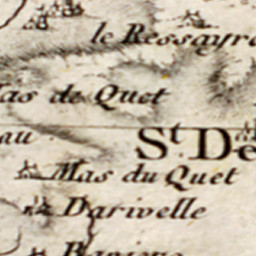 le Ressayre
Mas de Quet
au
St. De
Mas du Quet
Darivelle